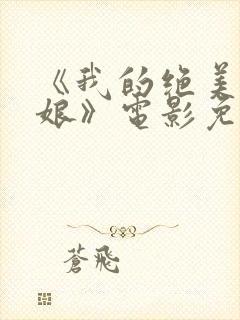 《我的绝美
娘》电影免
蒼飛